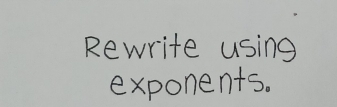 Rewrite using
exponents.